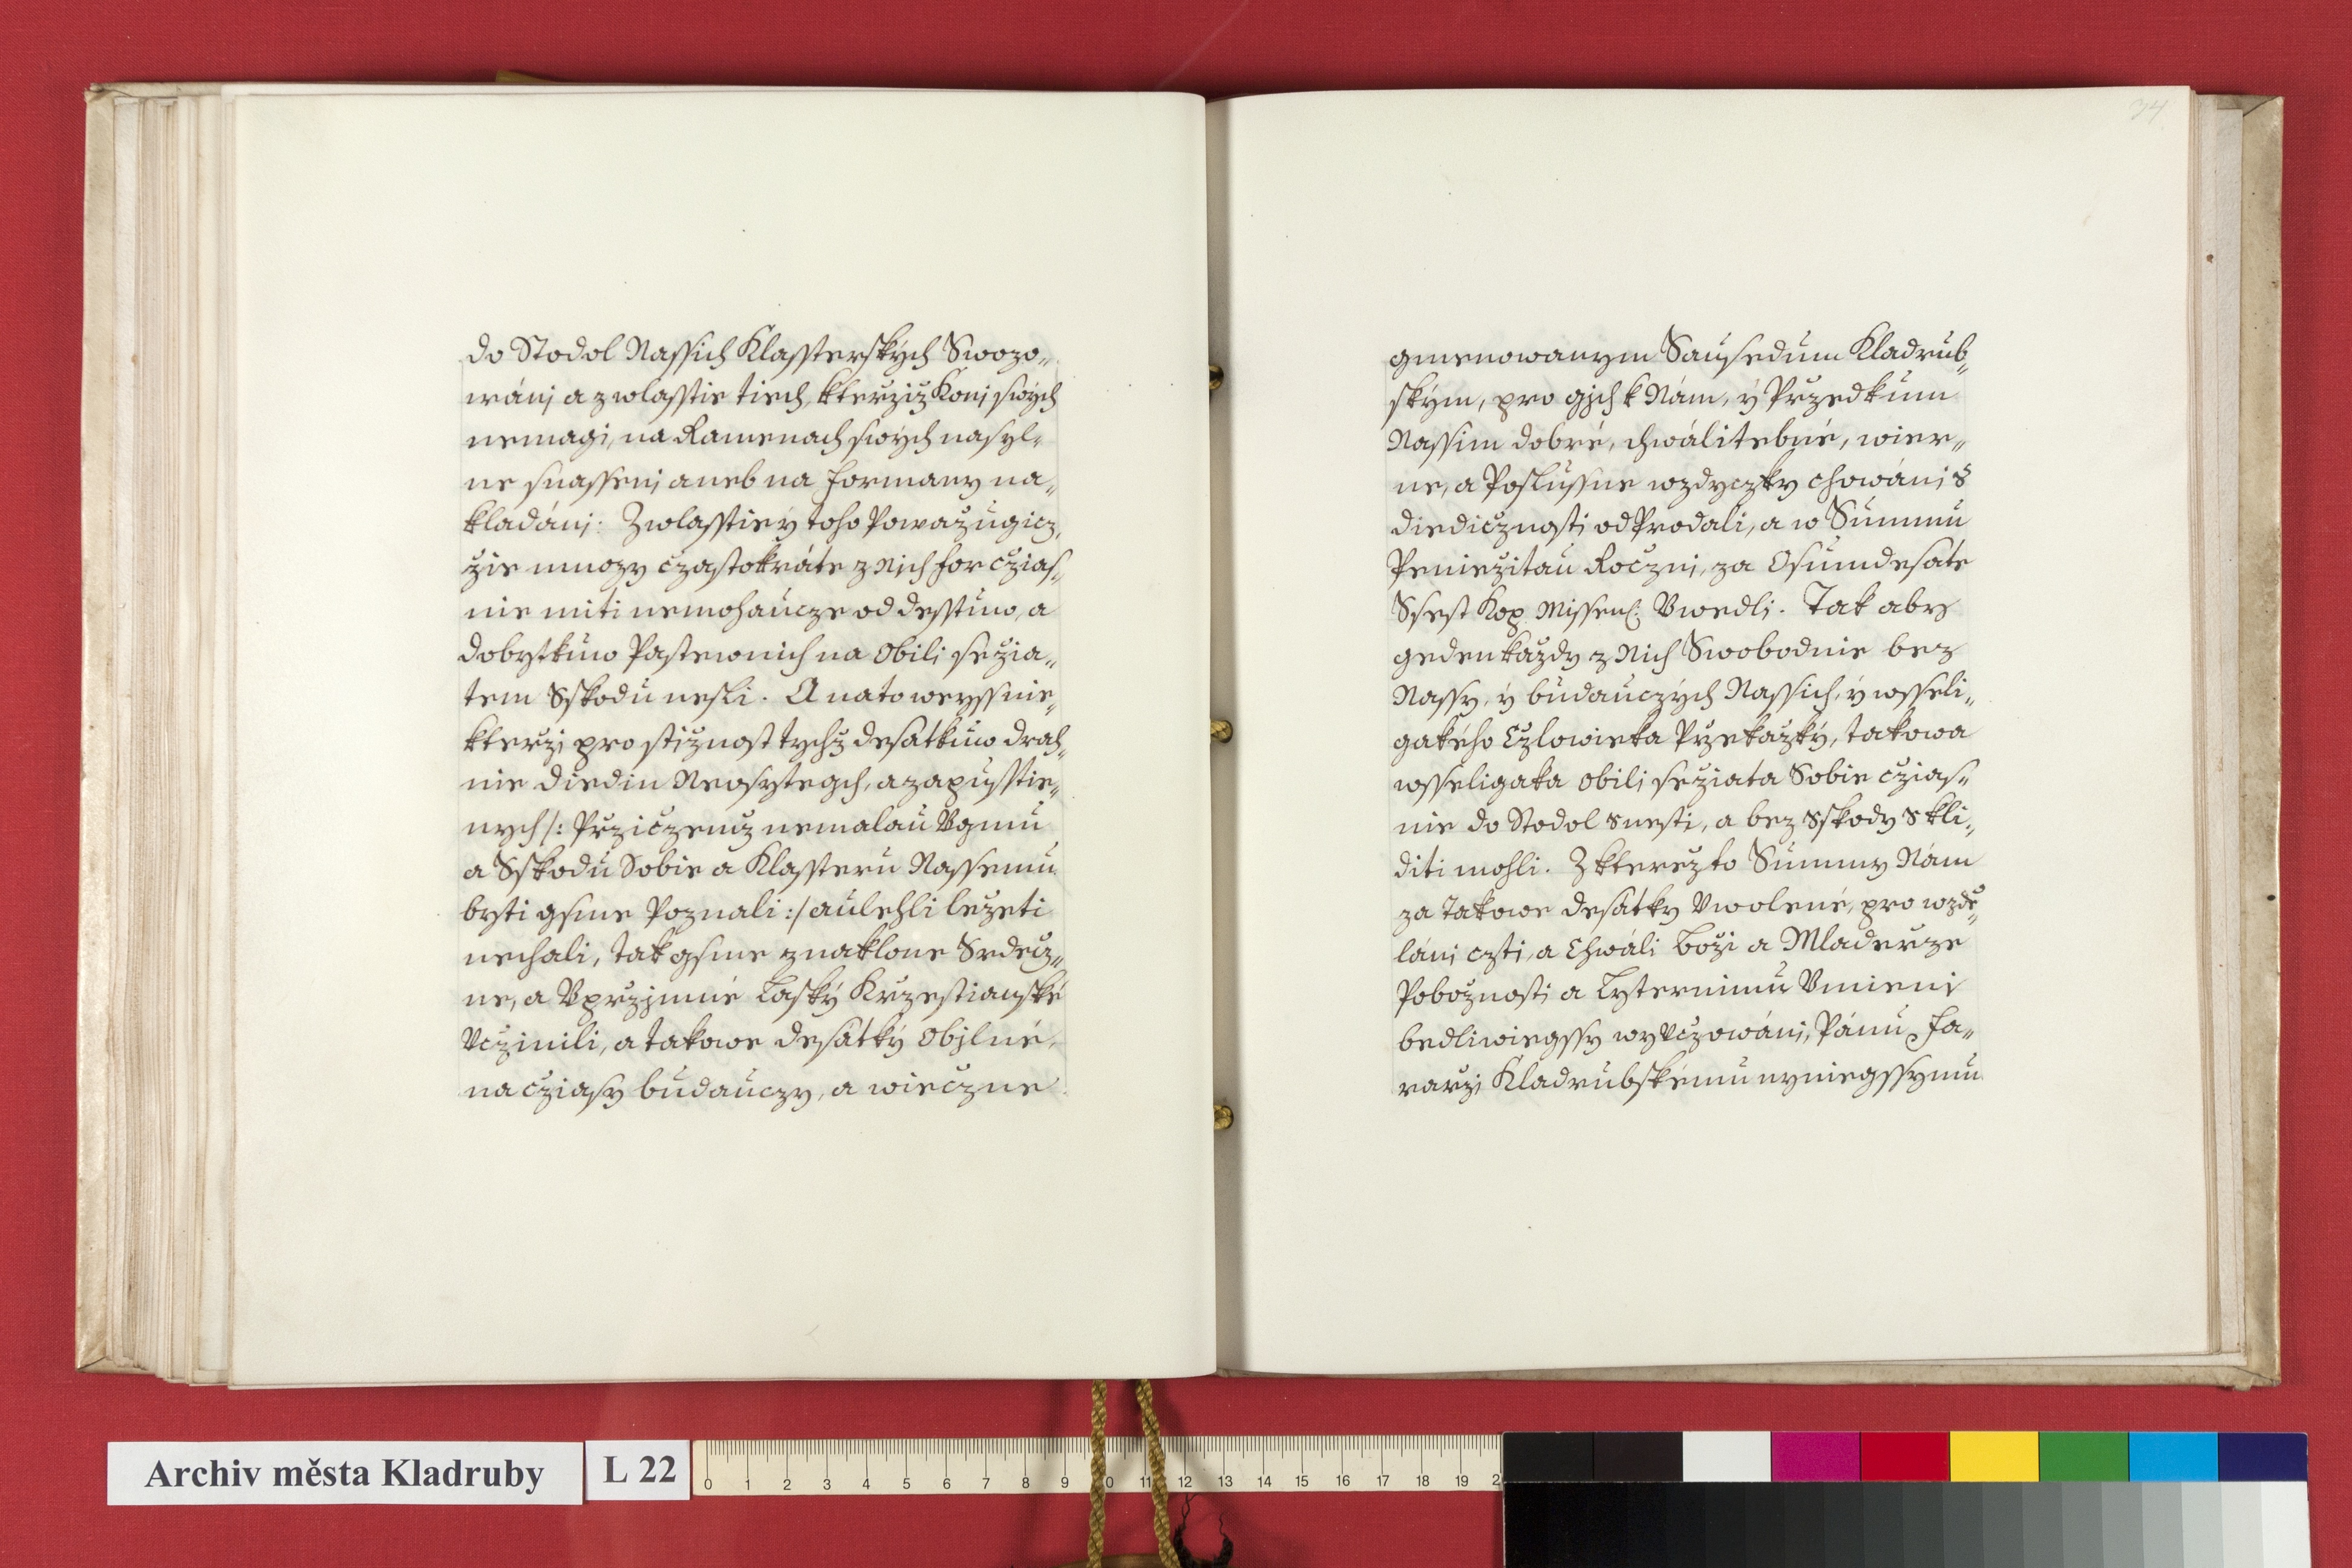 do Stodol Nassich Klassterských Swozo„
wánj a zwlasstie tiech, kterziz Konj swých
nemagi, na Ramenach swých nasyl„
ne snassenj aneb na Formany na„
kladánj. Zwlasstie ý toho Powazugicz,
zie mnozy czastokráte z Nich For cziaſ„
nie miti nemohaucze od desstuw, a
dobytkuw Pastewnich na Obilj sezia„
tem Sskodu nesli. A nato weyssnie„
kterzj pro stiznost tychz desatkuw drah„
nie diedin Neosytegch, a zapusstie„
nych /: Prziczenuz nemalau Vgmu
a Sskodu Sobie a Klassteru Nassemu
byti gsme Poznali :/ aulehli lezeti
nechali, tak gsme z naklone Srdecz„
ne, a Vprzjmné Lasky Krzestianské
Vczinili, a takowe desátký Objlné,
na cziasy budauczy, a wieczne
34
gmenowanym Sausedum Kladrub„
ským, pro gjch k Nám, ý Przedkum
Nassim dobré, chwálitebné, wier„
ne, a Poslussne wzdyczky chowánj s
diedicznosti od Prodali, a w Summu
Peniezitau Rocznj, za Osumdesate
Ssest Kop Missen: Vwedli. Tak aby
geden kazdy z Nich Swobodnie bez
Nassy, ý budauczých Nassich, ý wsseli„
gakého Czlowieka Przekazký, takowa
wsseligaka Obilj seziata Sobie cziaſ„
nie do Stodol snesti, a bez Sskody skli„
diti mohli. Z kterezto Summy Nám
za Takowe desátky Vwolené, pro wzde„
lánj czti, a Chwáli Bozi a Mladerze
Poboznosti a Lyternimu Vmienj
bedliwiegssy wyvczowánj, Pánu Fa„
rarzj Kladrubskému nyniegssymu
Archiv města Kladruby
L 22
0 1 2 3 4 5 6 7 8 9 10 11 12 13 14 15 16 17 18 19 2